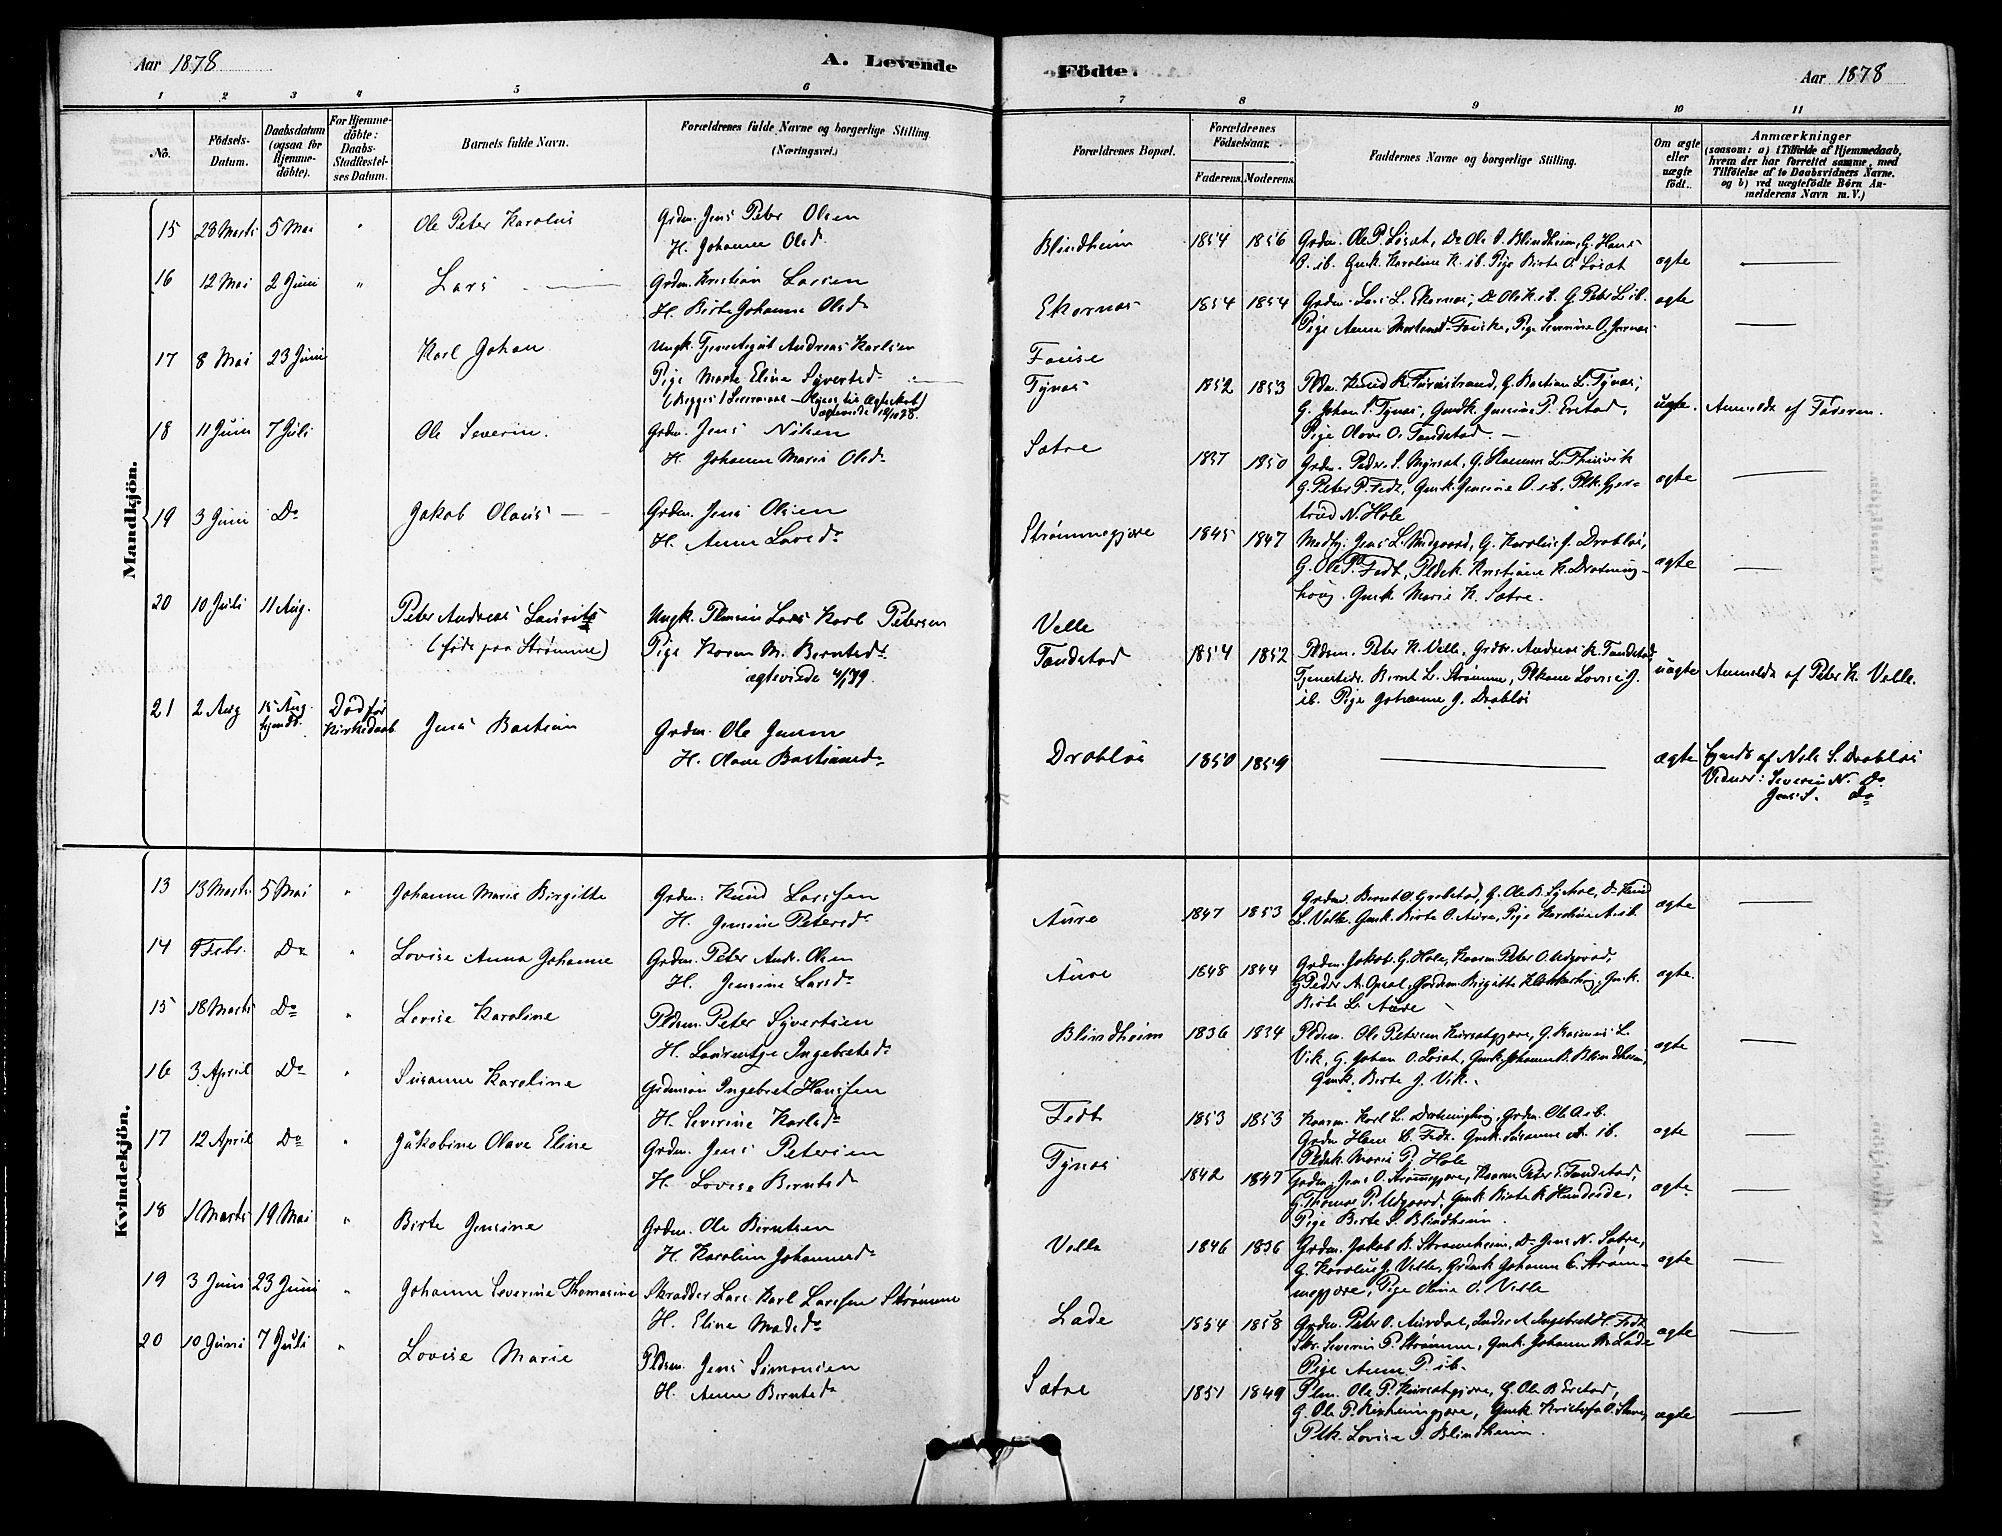 Aar 1878
A. Levende
Födte.
Aar 1878
1 2 3 4 5 6 7 8 9 10 11
No.
Födsels-
Datum.
Daabsdatum
(ogsaa for
Hjemme-
döbte).
For Hjemme-
döbte:
Daabs-
Stadfæstel-
ses Datum.
Barnets fulde Navn.
Forældrenes fulde Navne og borgerlige Stilling.
(Næringsvei.)
Forældrenes Bopæl.
Forældrenes
Födselsaar.
Faderens. Moderens.
Faddernes Navne og borgerlige Stilling.
Om ægte
eller
uægte
födt.
Anmærkninger
(saasom: a) i Tilfælde af Hjemmedaab,
hvem der har forrettet samme, med
Tilföielse af to Daabsvidners Navne.
og b) ved uægtefödte Börn An-
melderens Navn m. V.)
Mandkjön.
15 23 Marts 5 Mai " Ole Peter Karolus Grdm. Jens Peter Olsen
H. Johanne Olsd.
Blindheim 1854 1856 Grdm. Ole P. Løset, Do Ole P. Blindheim, G. Hans
O. ib. Gmk. Karoline K. ib. Pige Birte O. Løset
ægte
16 12 Mai 2 Juni " Lars Grdm. Kristian Larsen
H. Birte Johanne Olsd.
Ekornæs 1854 1854 Grdm. Lars L. Ekornæs, Do Ole K. ib. G. Peter L. ib.
Pige Anne
ægte
17 8 Mai 23 Juni Karl Johan Ungk. Andreas Karlsen
Pige Marte Eline Syvertsd.
Tynæs 1852 1853 Pldm. Knud K. G. Bastian L. Tynæs,
G. Johan P. Tynæs, Gmdk. Jensine P. Erstad,
Pige Olave O. Tandstad.
uægte. Anmeldt af Faderen.
18 11 Juni 7 Juli Ole Severin. Grdm. Jens Nilsen
H. Johanne Marie Olsd.
Sætre 1837 1850 Grdm. Peder S. G. Rasmus L.
G. Peter P. Fedt, Gmk. Jensine O. ib. Plk. Gjer-
trud N. Hole
ægte
19 3 Juni Do Jakob Olaus Grdm. Jens Olsen
H. Anne Larsd.
Strømmegjære 1845 1847 Medhj. Jens L. G. Karolus J. Drabløs,
G. Ole P. Fedt, Pldsk. Kristiane K. Drotning-
houg. Gmk. Marie K. Sætre.
ægte
20 10 Juli 11 Aug. Peter Andreas Laurits
(føde paa Strømme)
Ungk. Lars Karl Petersen
Pige Karen M. Berntsd.
Velle
Tandstad 1854 1852 Pldsm. Peter K. Velle, Andreas K. Tandstad
Bernt L. Strømme, Lovise J.
ib. Pige Johanne J. Drabløs
uægte Anmeldt af Peter K. Velle.
21 2 Aug 15 Aug. Hjmdt. Død før
Kirkedaab
Jens Bastian Grdm. Ole Jensen
H. Olave Bastiansd.
Drabløs 1850 1859
ægte Hjmdt af Nils S. Drabløs
Vidner: Severin N. Do
Jens S. Do
Kvindekjön.
13 13 Marts 5 Mai " Johanne Marie Birgitte Grdm. Knud Larssen
H. Jensine Petersd.
Aure 1847 1853 Grdm. Bernt O. Grebstad, G. Ole B. Do Knud
L. Velle. Gmk. Birte O. Aure, Pige Karoline A. ib.
ægte
14 9 Febr. Do " Lovise Anna Johanne Grdm. Peter Andr. Olsen
H. Jensine Larsd.
Aure 1848 1844 Grdm. Jakob G. Hole, Kaarm. Peter O. Udgaard,
G. Peder A. Birgitte K. Gmk.
Birte L. Aure
ægte.
15 18 Marts Do " Lovise Karoline Pldsm. Peter Syvertsen
H. Laurentse Ingebretsd.
Blindheim 1836 1834 Pldsm. Ole Petersen Kursetgjære, G. Rasmus L.
Vik, G. Johan O. Løset, Gmk. Johanne R. Blindheim,
Gmk. Birte J. Vik.
ægte
16 3 April Do " Susanne Karoline Ingebret Hanssen
H. Severine Karlsd.
Fedt 1853 1853 Kaarm. Karl L. Drotninghoug, Grdm. Ole A. ib.
Grdm Hans C. Fedt. Gmk. Susanne A. ib.
Pldsk. Marie P. Hole
ægte
17 12 April Do " Jakobine Olave Eline Grdm. Jens Petersen
H. Lovise Berntsd
Tynæs 1842 1847 Grdm. Jens O. Strømgjære, Kaarm Peter E. Tandstad,
G. Thomas P. Udgaard, Gmk. Birte K. Hundeide,
Pige Birte S. Blindheim.
ægte.
18 1 Marts 19 Mai " Birte Jensine Grdm. Ole Berntsen
H. Karoline Johannesd.
Velle 1846 1836 Grdm. Jakob B. Strømsheim, Do Jens N. Sætre,
G. Karolus J. Velle, Johanne E. Strøm-
megjære, Pige Olina O. Velle
ægte
19 3 Juni 23 Juni " Johanne Severine Thomasine Skrædder Lars Karl Larssen Strømme
H. Eline Madsd.
Lade 1854 1858 Grdm. Peter O. Aursdal, Inders Ingebret H. Fedt
Skr. Severin P. Strømme, Gmk. Johanne M. Lade
Pige Anne P. ib.
ægte
20 10 Juni 7 Juli " Lovise Marie Pldsm. Jens Simonsen
H. Anne Berntsd.
Sætre 1851 1849 Plm. Ole P. Kursetgjære, G. Ole B. Erstad,
G. Ole P. Gmk. Kristofa O.
Plk. Lovise P. Blindheim.
ægte